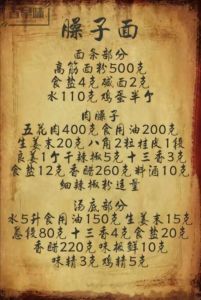 臊子面
面条部分
高筋面粉500克
食盐4克 碱面2克
水110克 鸡蛋半个
肉臊子
五花肉400克 食用油200克
生姜末20克 八角2粒 桂皮1段
良姜1个 干辣椒5克 十三香3克
食盐12克 香醋260克 料酒10克
细辣椒粉适量
汤底部分
水5升 食用油150克 生姜末15克
葱段80克 十三香4克 食盐20克
香醋220克 味极鲜10克
味精3克 鸡精5克